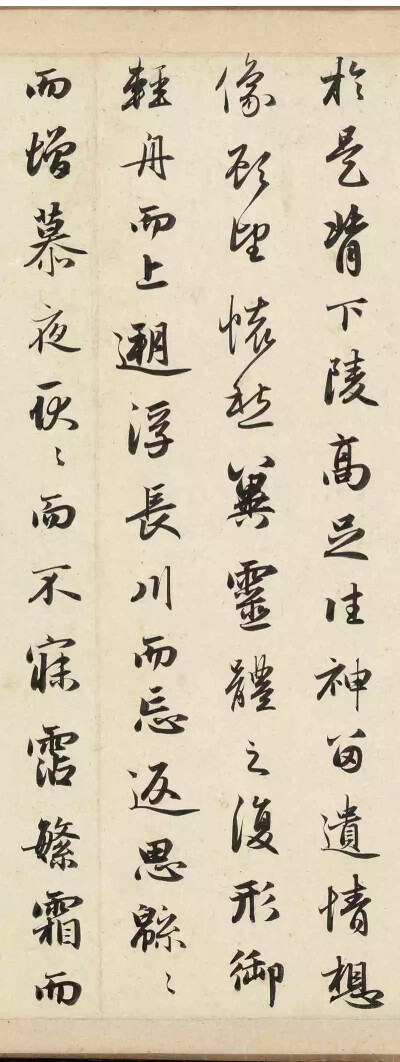 於是背下陵高足往神留遺情想
像顾望懐愁兾靈體之復形御
輕舟而上遡浮長川而忘返思緜〻
而增慕夜耿〻而不寐霑繁霜而